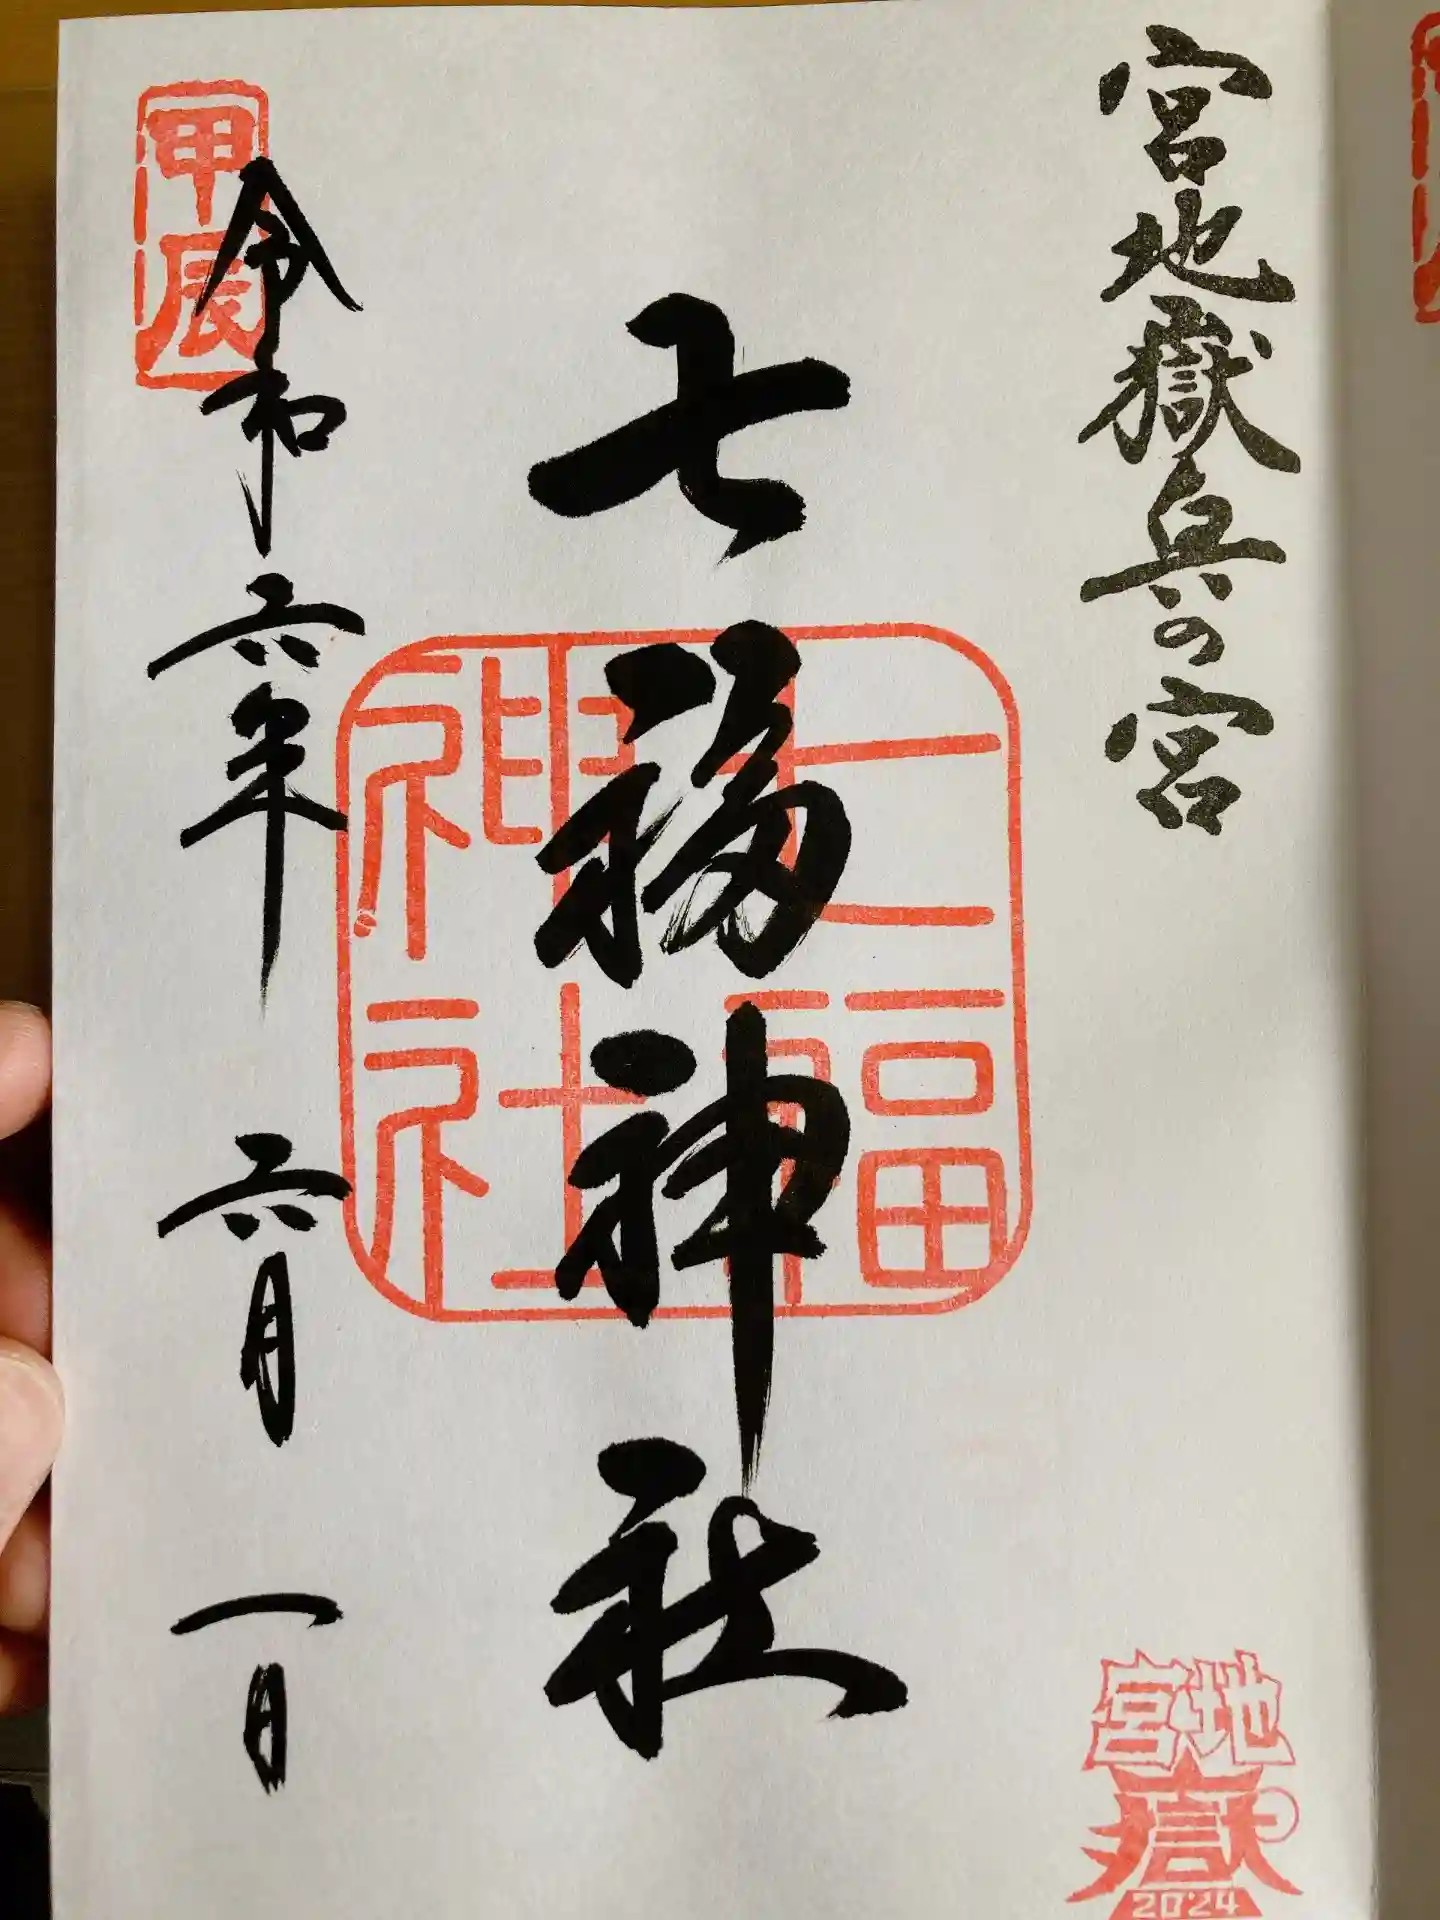 宮地嶽兵の宮
七福神社
七福
神社
甲辰
令和六年 六月 一日
宮地
嶽
2024